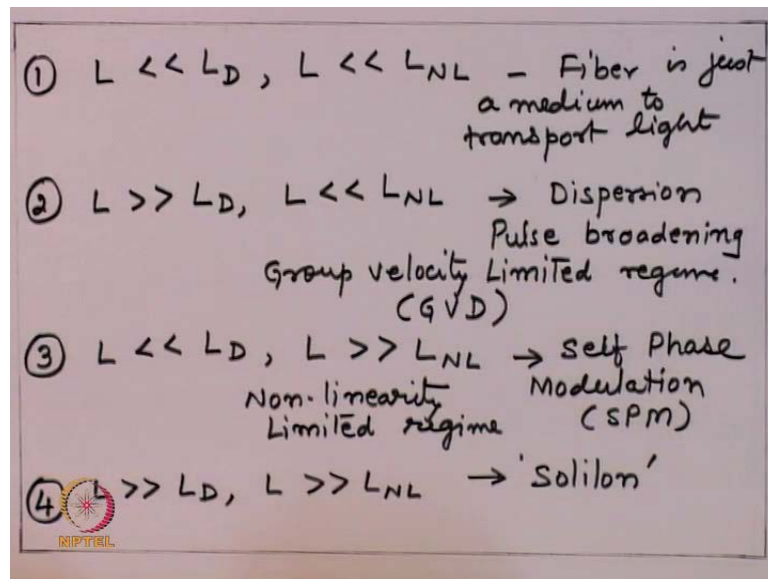 ① L << L_D , L << L_NL – Fiber is just
a medium to
transport light
② L >> L_D, L << L_NL → Dispersion
Pulse broadening
Group velocity Limited regime.
(GVD)
③ L << L_D , L >> L_NL → Self Phase
Non-linearity Modulation
Limited regime (SPM)
④ L >> L_D, L >> L_NL → 'Soliton'
NPTEL